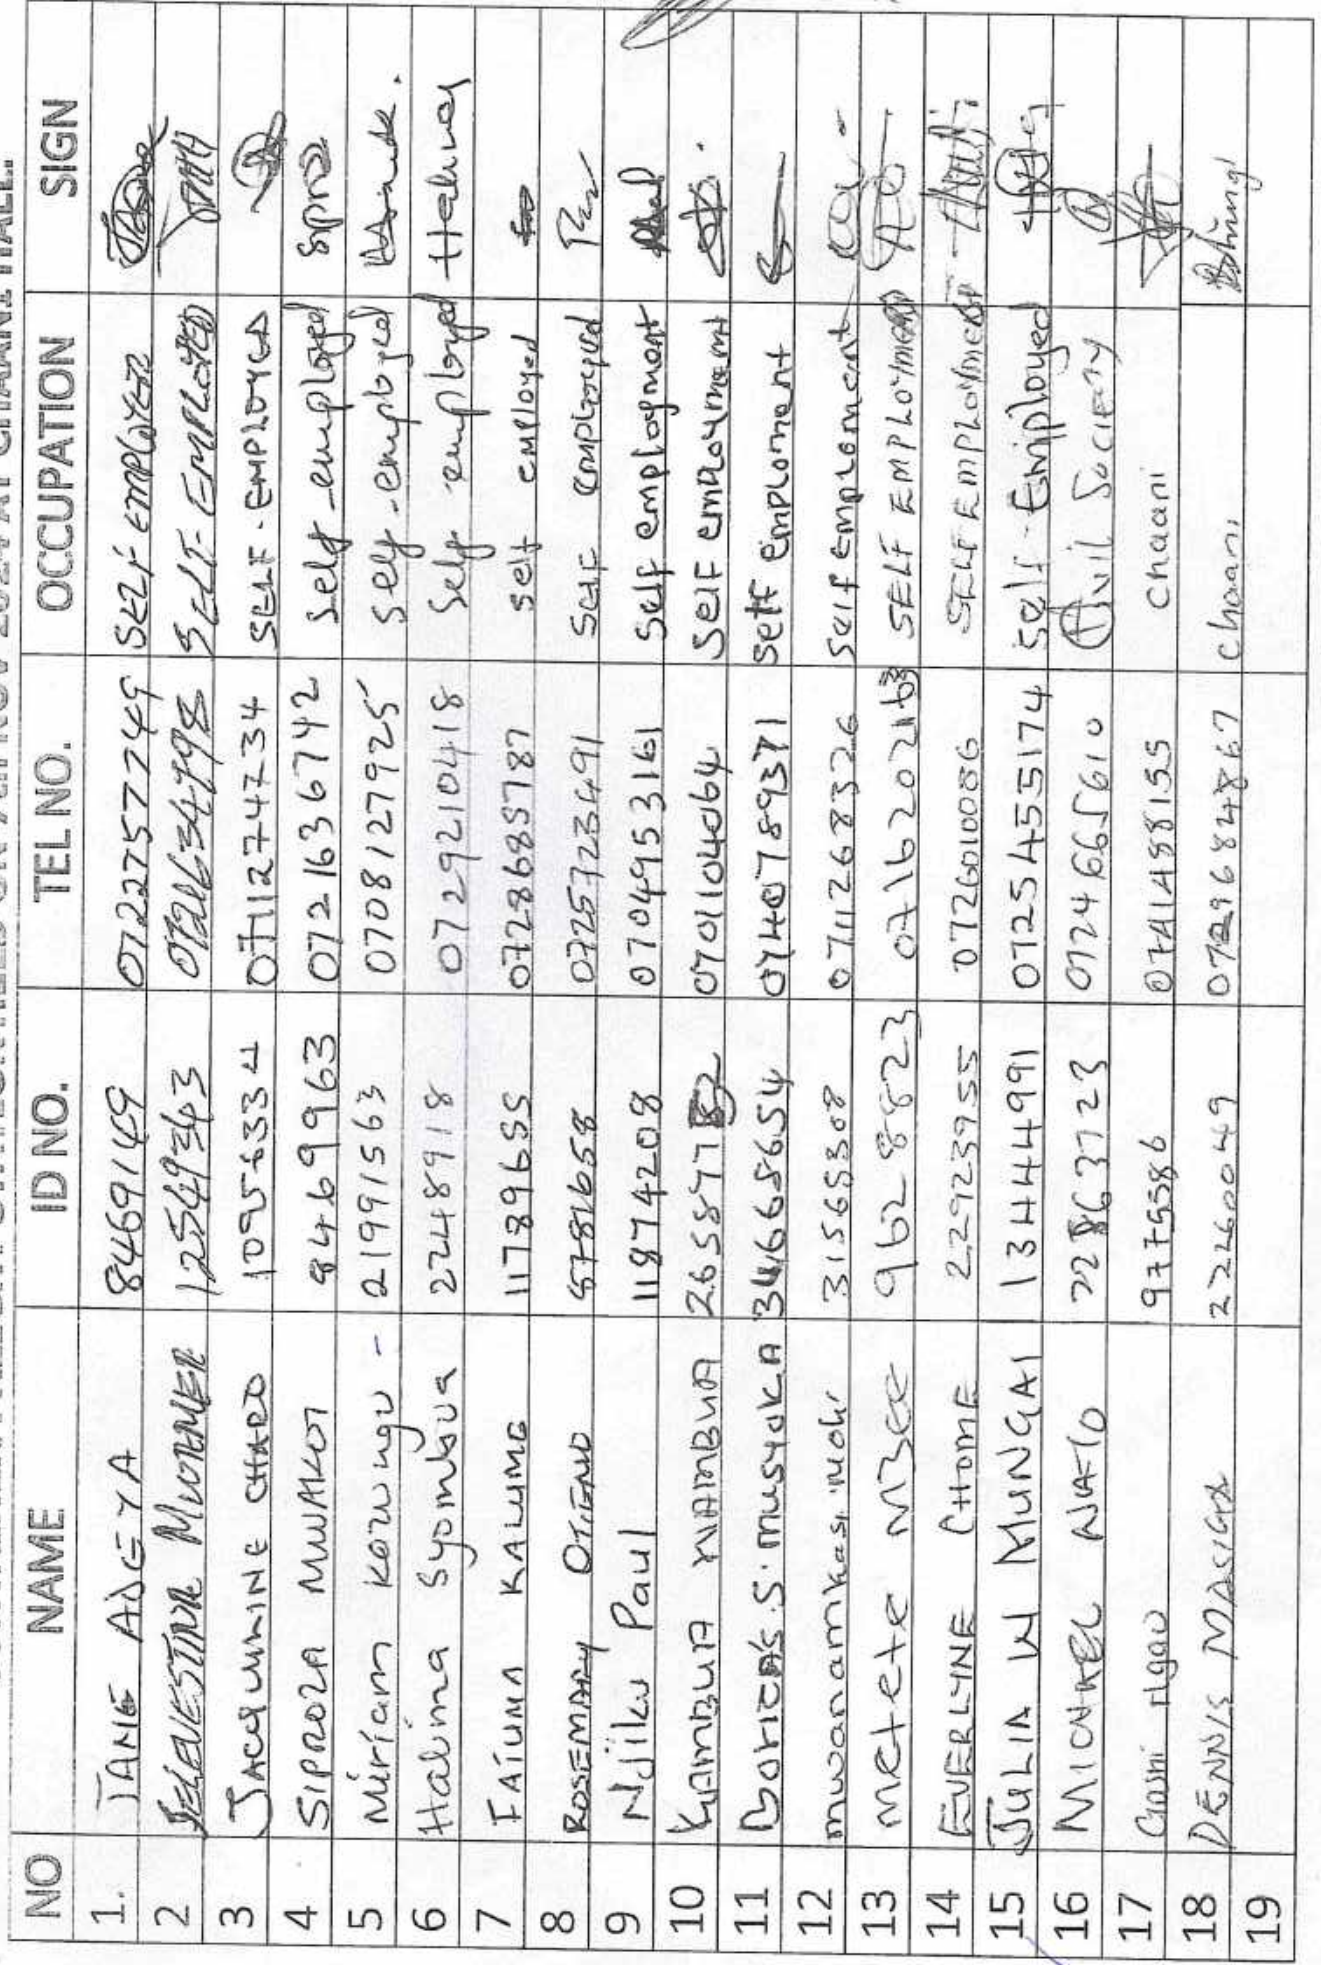 NO NAME ID NO. TEL NO. OCCUPATION SIGN
1. JANE ADEYA 8469149 0722757749 SELF EMPLOYED
2 12549343 SELF-EMPLOYED
3 JACQUMINE CHARO 10956334 0711274734 SELF-EMPLOYED
4 SIPROZA MWAKOI 8469963 0721636742 Self-employed
5 Miriam 21991563 0708127925 Self-employed
6 Halima Syombua 22489118 0729210418 Self-employed Halima
7 FATUMA KALUME 11789655 0728685787 Self employed
8 ROSEMARY OTIENO 0725723491 Self employed
9 Njiku Paul 11874208 0704953161 Self employment
10 KAMBUA WAMBUA 0701104064 Self employment
11 DORICAS.S.MUSYOKA 34668654 0740789371 Self employment
12 31568308 0711268326 Self employment
13 Metete Mzee 9628823 SELF EMPLOYMENT
14 EVERLYNE CHOME 22923955 0726010086 SELF EMPLOYMENT
15 JULIA W MUNGAI 13444991 0725455174 Self-Employed
16 MICHAEL NATO 22863723 0724665610 Civil SOCIETY
17 Ngao 9775586 0741488155 Chaani
18 DENNIS MASIGA 22260049 0729684867 Chaani
19